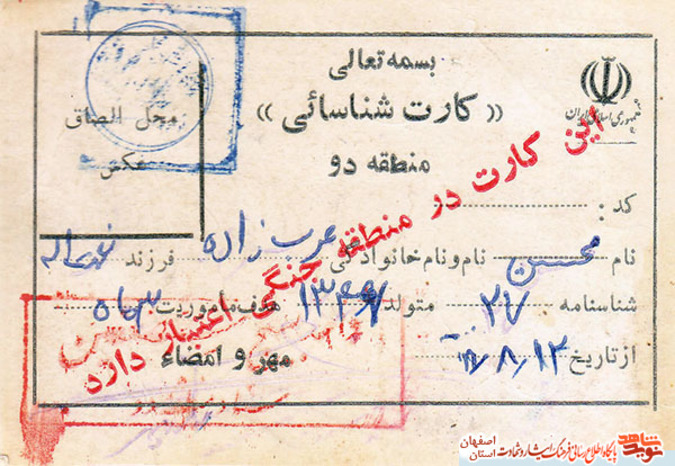 بسمه تعالی
« کارت شناسائی »
منطقه دو
جمهوری اسلامی ایران
محل الصاق
عکس
این کارت در منطقه جنگی اعتبار دارد
کد :
نام محسن نام و نام خانوادگی عرب زاده فرزند
شناسنامه ۲۷ متولد هدف مأموریت
از تاریخ ۱۲/۸/ مهر و امضاء
نوید شاهد
پایگاه اطلاع رسانی فرهنگ ایثار و شهادت
اصفهان
استان